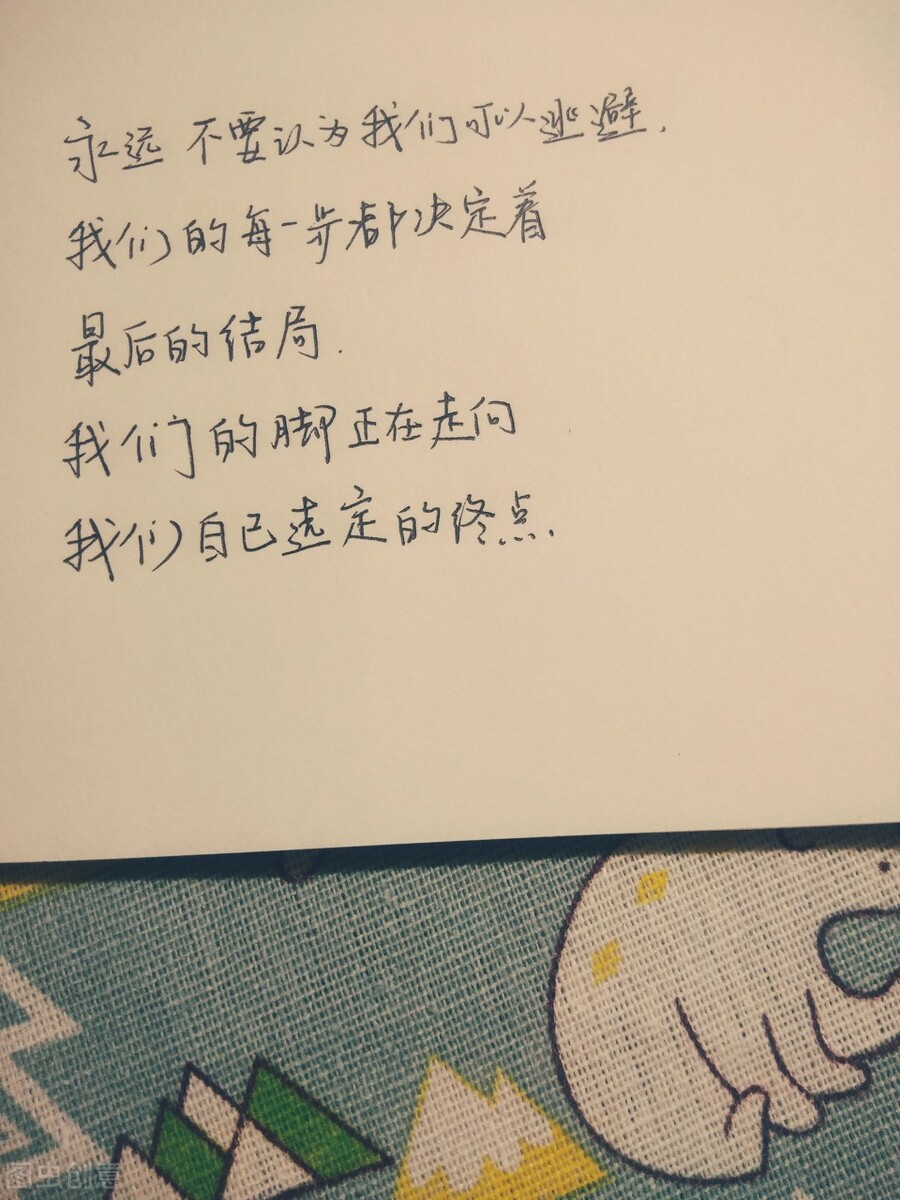 永远 不要认为我们可以逃避.
我们的每一步都决定着
最后的结局.
我们的脚正在走向
我们自己选定的终点.
图虫创意